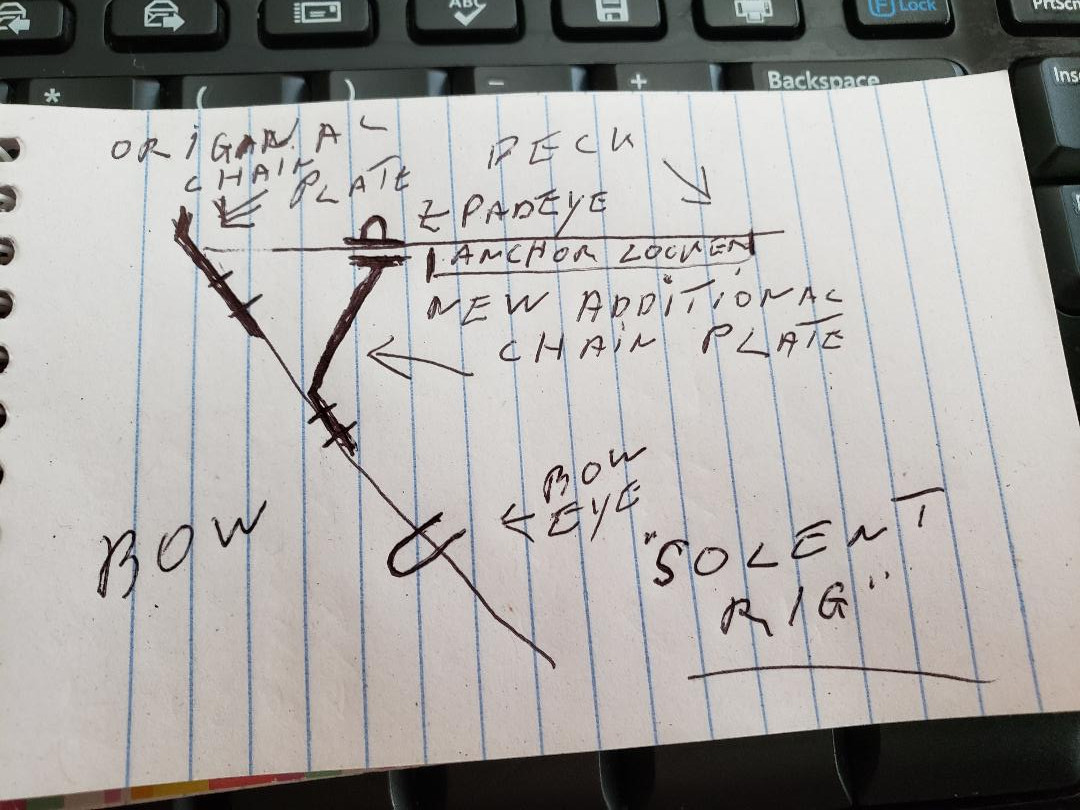 F Lock
PrtScn
ABC
* ( ) - + Backspace
Inse
ORIGANAL
CHAIN
PLATE
DECK
PADEYE
ANCHOR LOCKER
NEW ADDITIONAL
CHAIN PLATE
BOW
EYE
BOW
"SOLENT
RIG"